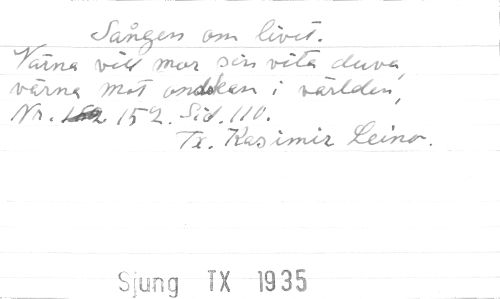 Sången om livet.
Värna vill mor sin vita duva,
värna mot ondskan i världen,
Nr. 152. Sid. 110.
Tx. Kasimir Leino.
Sjung TX 1935